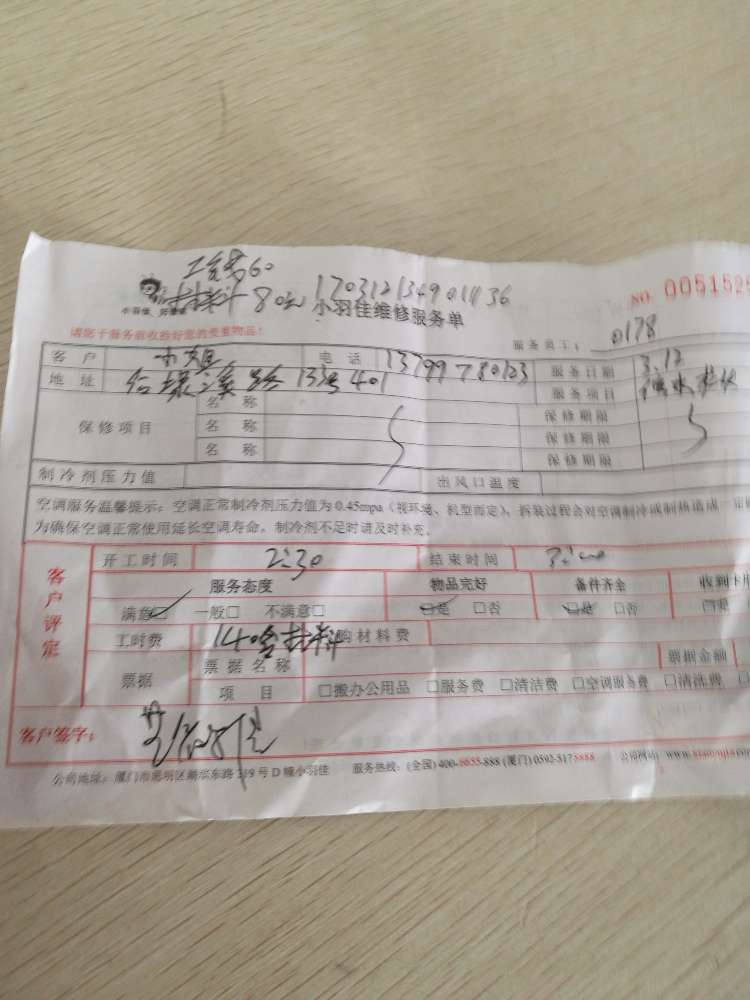 80元 170312134901436
小羽佳维修服务单
NO. 0051525
请您于服务前收拾好您的贵重物品!
服务员工: 0178
客 户 电 话 13799780123 服务日期 3.12
地 址 133号401 服务项目
保修项目
名 称 保修期限
名 称 保修期限
名 称 保修期限
制冷剂压力值 出风口温度
空调服务温馨提示: 空调正常制冷剂压力值为 0.45mpa (视环境、机型而定), 拆装过程会对空调制冷或制热造成一
为确保空调正常使用延长空调寿命, 制冷剂不足时请及时补充。
客户评定
开工时间 2:30 结束时间
服务态度 物品完好 备件齐全 收到卡
满意☑ 一般□ 不满意□ ☑是 □否 ☑是 □否 □是
工时费 140含材料 购材料费
票据 票据名称 票据金额
项 目 □搬办公用品 □服务费 □清洁费 □空调服务费 □清洗费
客户签字:
公司地址: 厦门市思明区 号 D 幢小羽佳 服务热线: (全国) 400-6655-888 (厦门) 0592-5175888 公司网站: